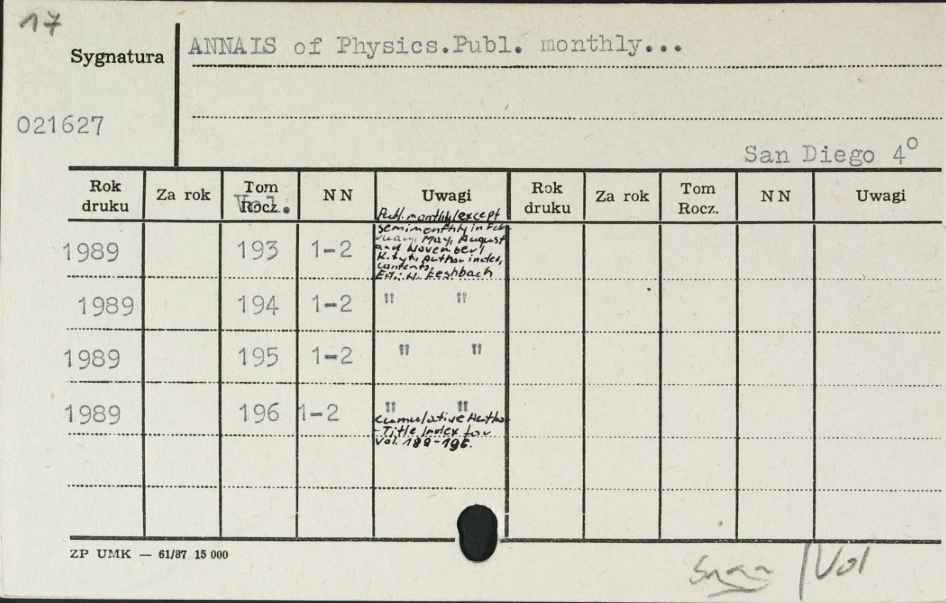 17
Sygnatura
ANNAlS of Physics.Publ. monthly...
021627
San Diego 4°
Rok druku Za rok Tom Rocz. Vol. NN Uwagi Rok druku Za rok Tom Rocz. NN Uwagi
Publ. monthly/except
semimonthly in Feb
ruary, May, August
and November/
K.tyt. Author index,
contents.
Ed.: H. Feshbach
1989 193 1-2
1989 194 1-2 " "
1989 195 1-2 " "
1989 196 1-2 " "
Cumulative Autho
-Title Index for
Vol. 189-196.
ZP UMK — 61/87 15 000
Vol